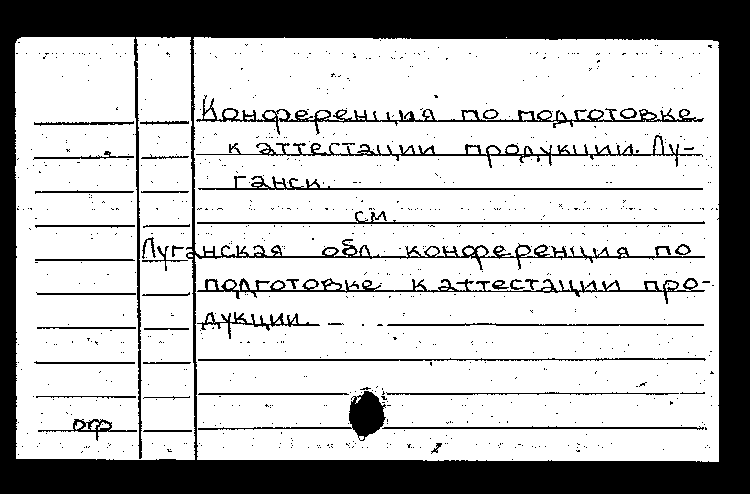 Конференция по подготовке
к аттестации продукции. Лу-
ганск.
см.
Луганская обл. конференция по
подготовке к аттестации про-
дукции.